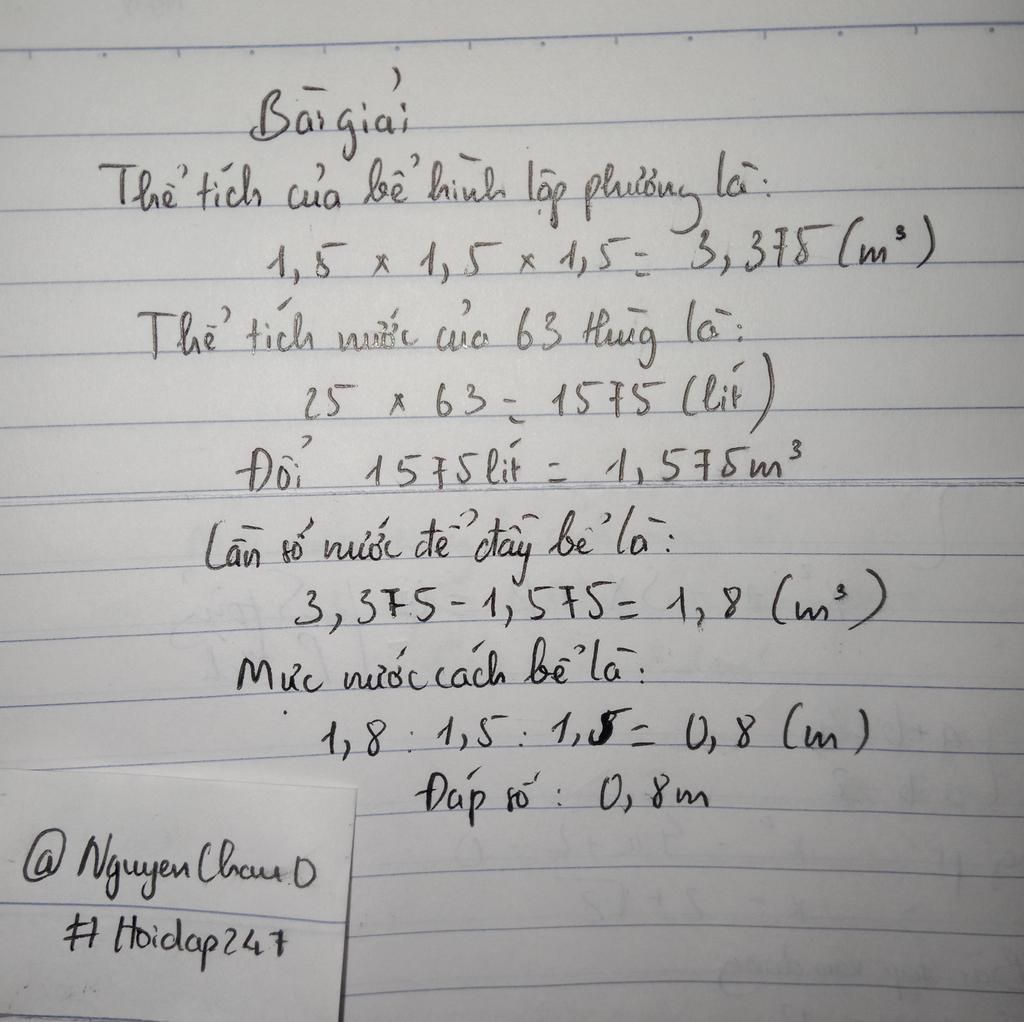 Bài giải
Thể tích của bể hình lập phương là:
1,5 × 1,5 × 1,5 = 3,375 (m³)
Thể tích nước của 63 thùng là:
25 × 63 = 1575 (lít)
Đổi 1575 lít = 1,575m³
Cần số nước để đầy bể là:
3,375 - 1,575 = 1,8 (m³)
Mực nước cách bể là:
1,8 : 1,5 : 1,5 = 0,8 (m)
Đáp số : 0,8m
@NguyenChauD
#Hoidap247